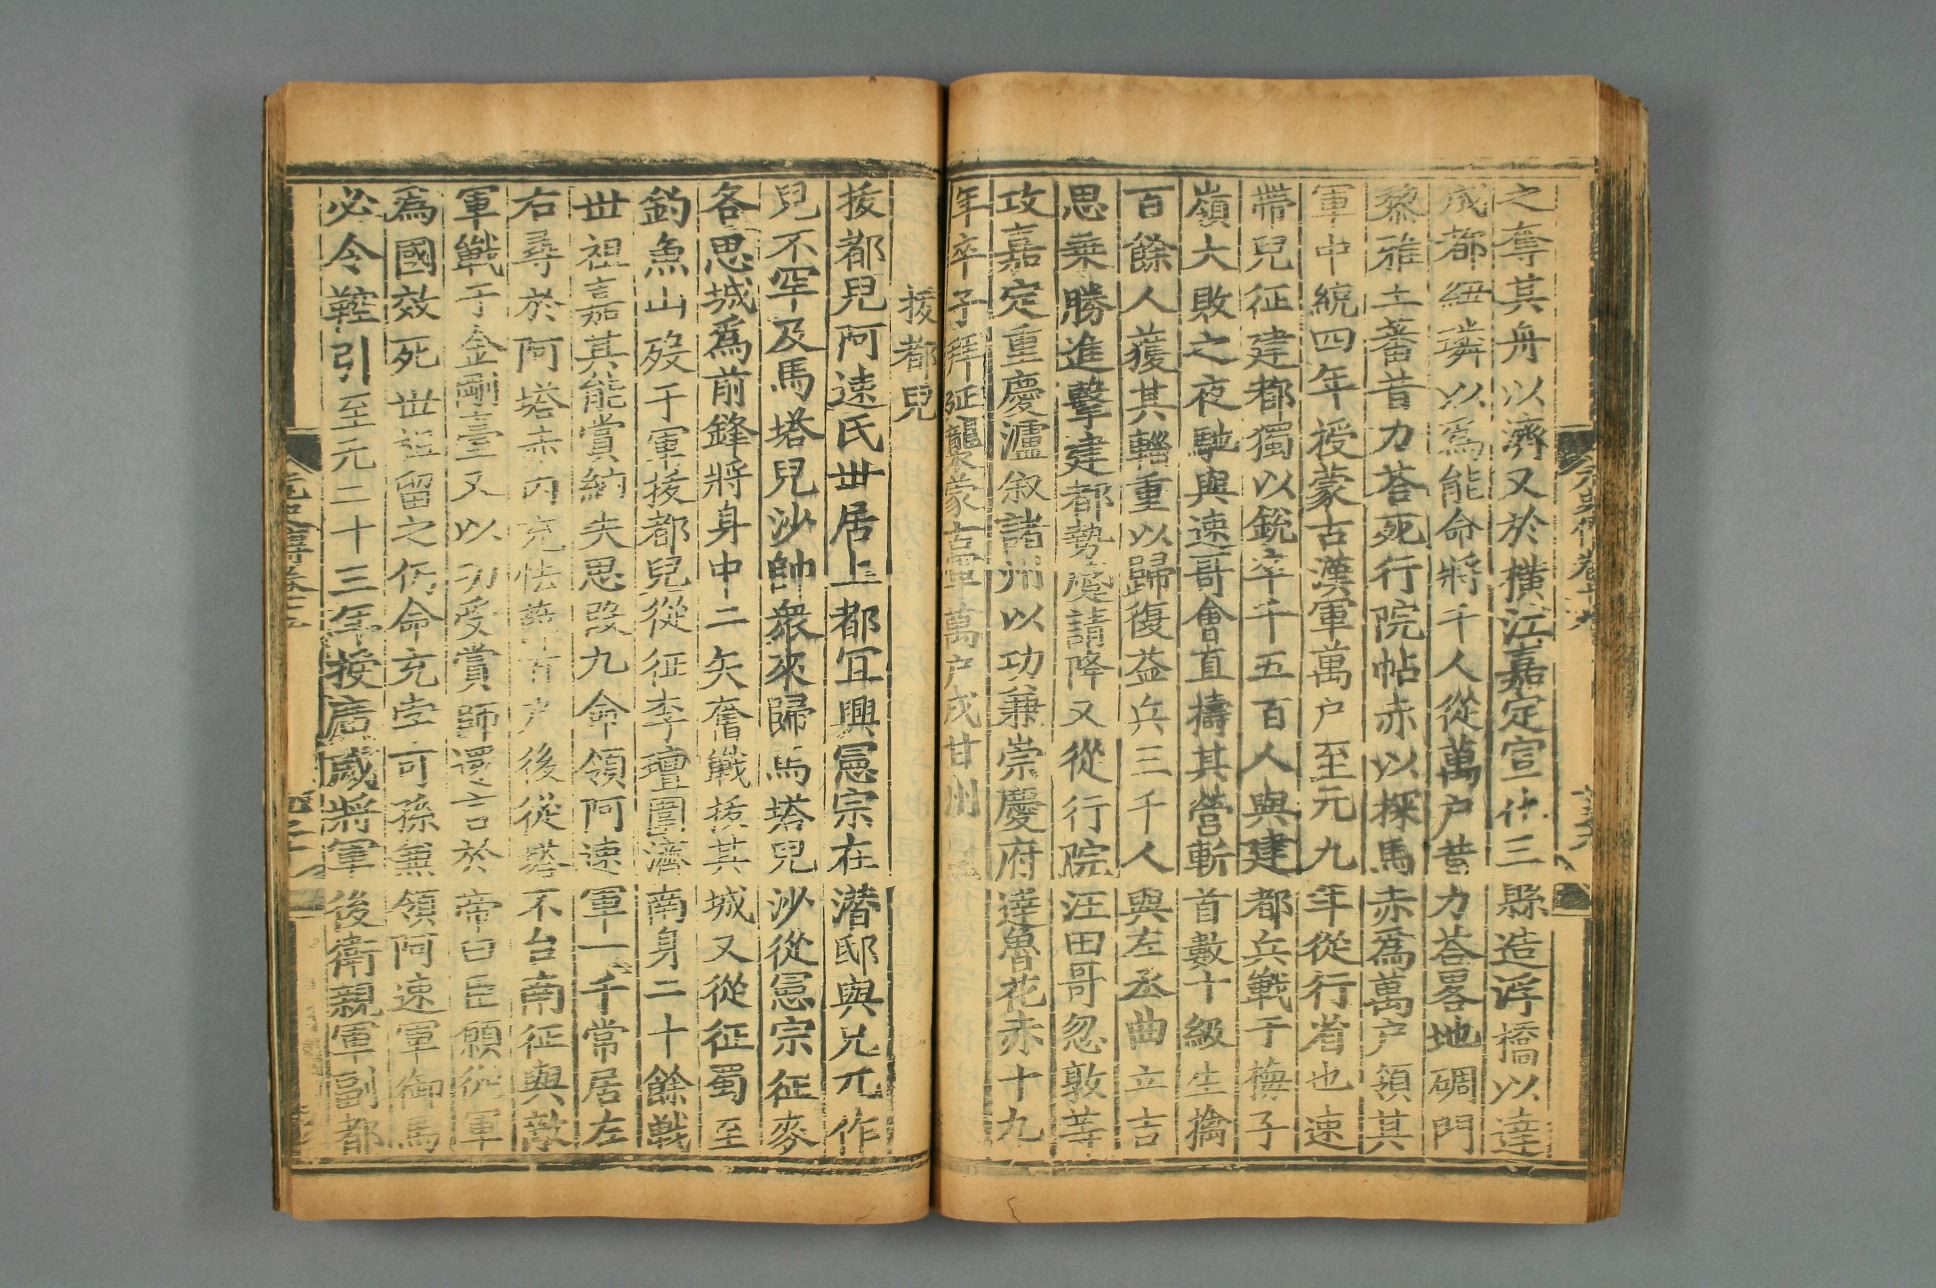 之奪其舟以濟又於橫江嘉定宣化三縣造浮橋以達
成都紐璘以爲能命將千人從萬戶黄力荅畧地碉門
黎雅土蕃昔力荅死行院帖赤以探馬赤爲萬戶領其
軍中統四年授蒙古漢軍萬户至元九年從行省也速
帶兒征建都獨以銳卒千五百人與建都兵戰于梅子
嶺大敗之夜馳與速哥會直擣其營斬首數十級生擒
百餘人獲其輜重以歸復益兵三千人與左丞曲立吉
思乗勝進擊建都勢蹙請降又從行院汪田哥忽敦等
攻嘉定重慶瀘叙諸州以功兼崇慶府達魯花赤十九
年卒子拜延襲蒙古軍萬户戍甘州
拔都兒
拔都兒阿速氏丗居上都冝興憲宗在潜邸與兄兀作
兒不罕及馬塔兒沙帥衆來歸馬塔兒沙從憲宗征麥
各思城爲前鋒將身中二矢奮戰拔其城又從征蜀至
釣魚山歿于軍拔都兒從征李璮圍濟南身二十餘戰
丗祖嘉其能賞納失思叚九命領阿速軍一千常居左
右尋於阿塔赤内充怯薛百户後從塔不台南征與敵
軍戰于金剛臺又以功受賞師還言於帝曰臣願從軍
爲國效死世祖留之仍命充孛可孫兼領阿速軍御馬
必令鞚引至元二十三年授廣威將軍後衛親軍副都